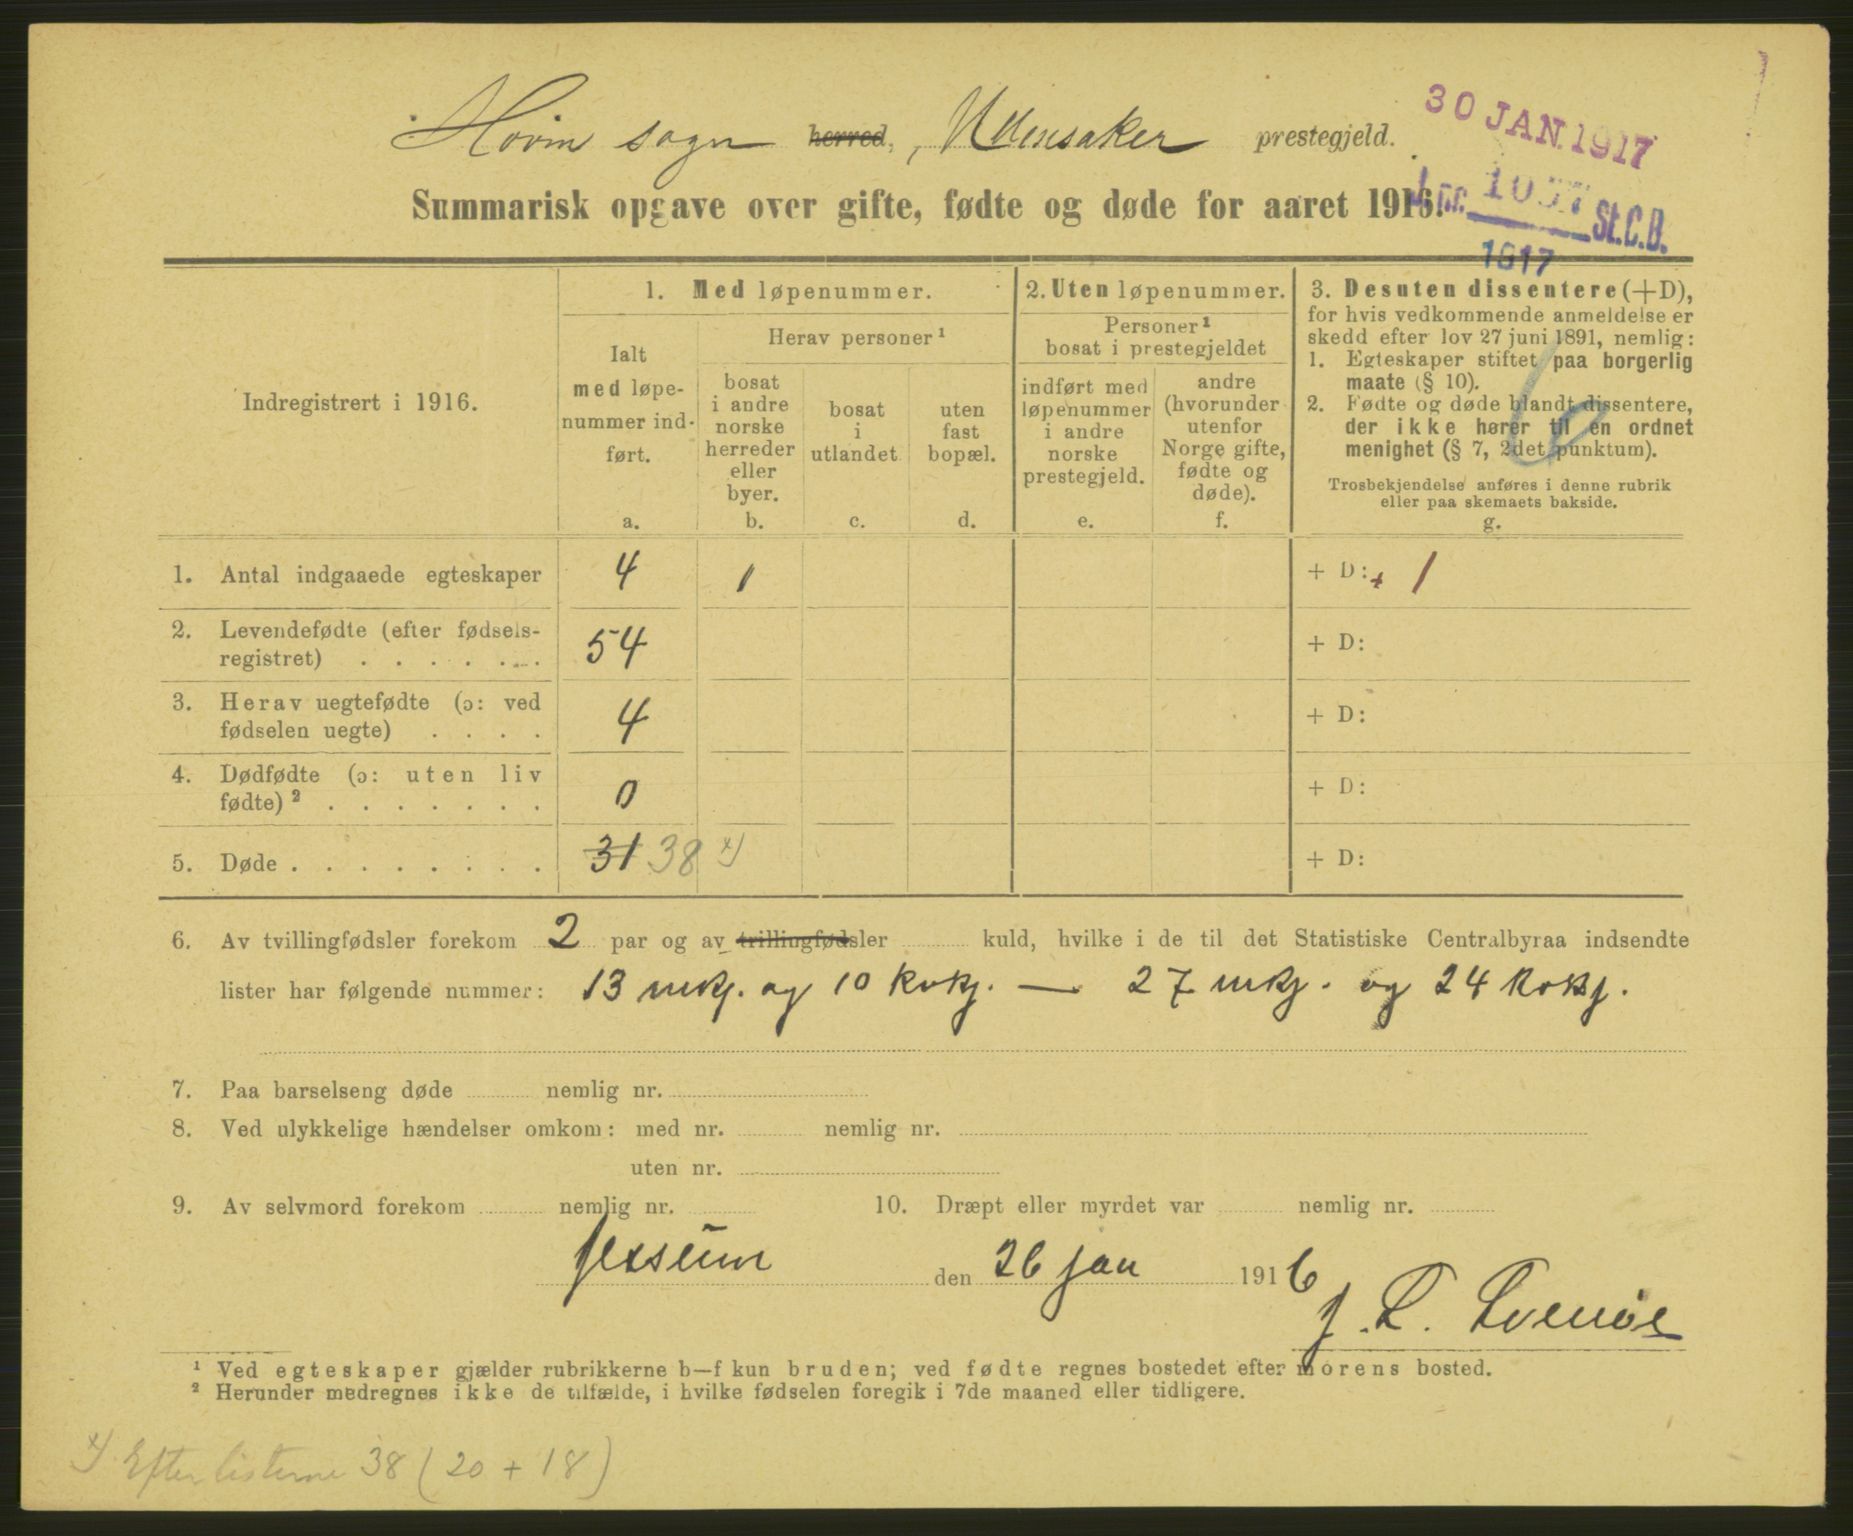 Hovin sogn herred, , Ullensaker prestegjeld.
30 JAN. 1917
J.nr. St.C.B.
1917
Summarisk opgave over gifte, fødte og døde for aaret 1916.
Indregistrert i 1916.
1. Med løpenummer.
Ialt
med løpe-
nummer ind-
ført.
a.
Herav personer ¹
bosat
i andre
norske
herreder
eller
byer.
b.
bosat
i
utlandet.
c.
uten
fast
bopæl.
d.
2. Uten løpenummer.
Personer ¹
bosat i prestegjeldet
indført med
løpenummer
i andre
norske
prestegjeld.
e.
andre
(hvorunder
utenfor
Norge gifte,
fødte og
døde).
f.
3. Desuten dissentere (+D),
for hvis vedkommende anmeldelse er
skedd efter lov 27 juni 1891, nemlig:
1. Egteskaper stiftet paa borgerlig
maate (§ 10).
2. Fødte og døde blandt dissentere,
der ikke hører til en ordnet
menighet (§ 7, 2det punktum).
Trosbekjendelse anføres i denne rubrik
eller paa skemaets bakside.
g.
1. Antal indgaaede egteskaper 4 1 + D: + 1
2. Levendefødte (efter fødsels-
registret) . . . . . . . 54 + D:
3. Herav uegtefødte (ɔ: ved
fødselen uegte) . . . . 4 + D:
4. Dødfødte (ɔ: uten liv
fødte) ² . . . . . . . 0 + D:
5. Døde . . . . . . . . 31 38 x) + D:
6. Av tvillingfødsler forekom 2 par og av trillingfødsler kuld, hvilke i de til det Statistiske Centralbyraa indsendte
lister har følgende nummer: 13 mkj. og 10 kvkj. — 27 mkj. og 24 kvkj.
7. Paa barselseng døde nemlig nr.
8. Ved ulykkelige hændelser omkom: med nr. nemlig nr.
uten nr.
9. Av selvmord forekom nemlig nr. 10. Dræpt eller myrdet var nemlig nr.
Jessum den 26 jan 1916
¹ Ved egteskaper gjælder rubrikkerne b—f kun bruden; ved fødte regnes bostedet efter morens bosted.
² Herunder medregnes ikke de tilfælde, i hvilke fødselen foregik i 7de maaned eller tidligere.
x) Efter listerne 38 (20 + 18)